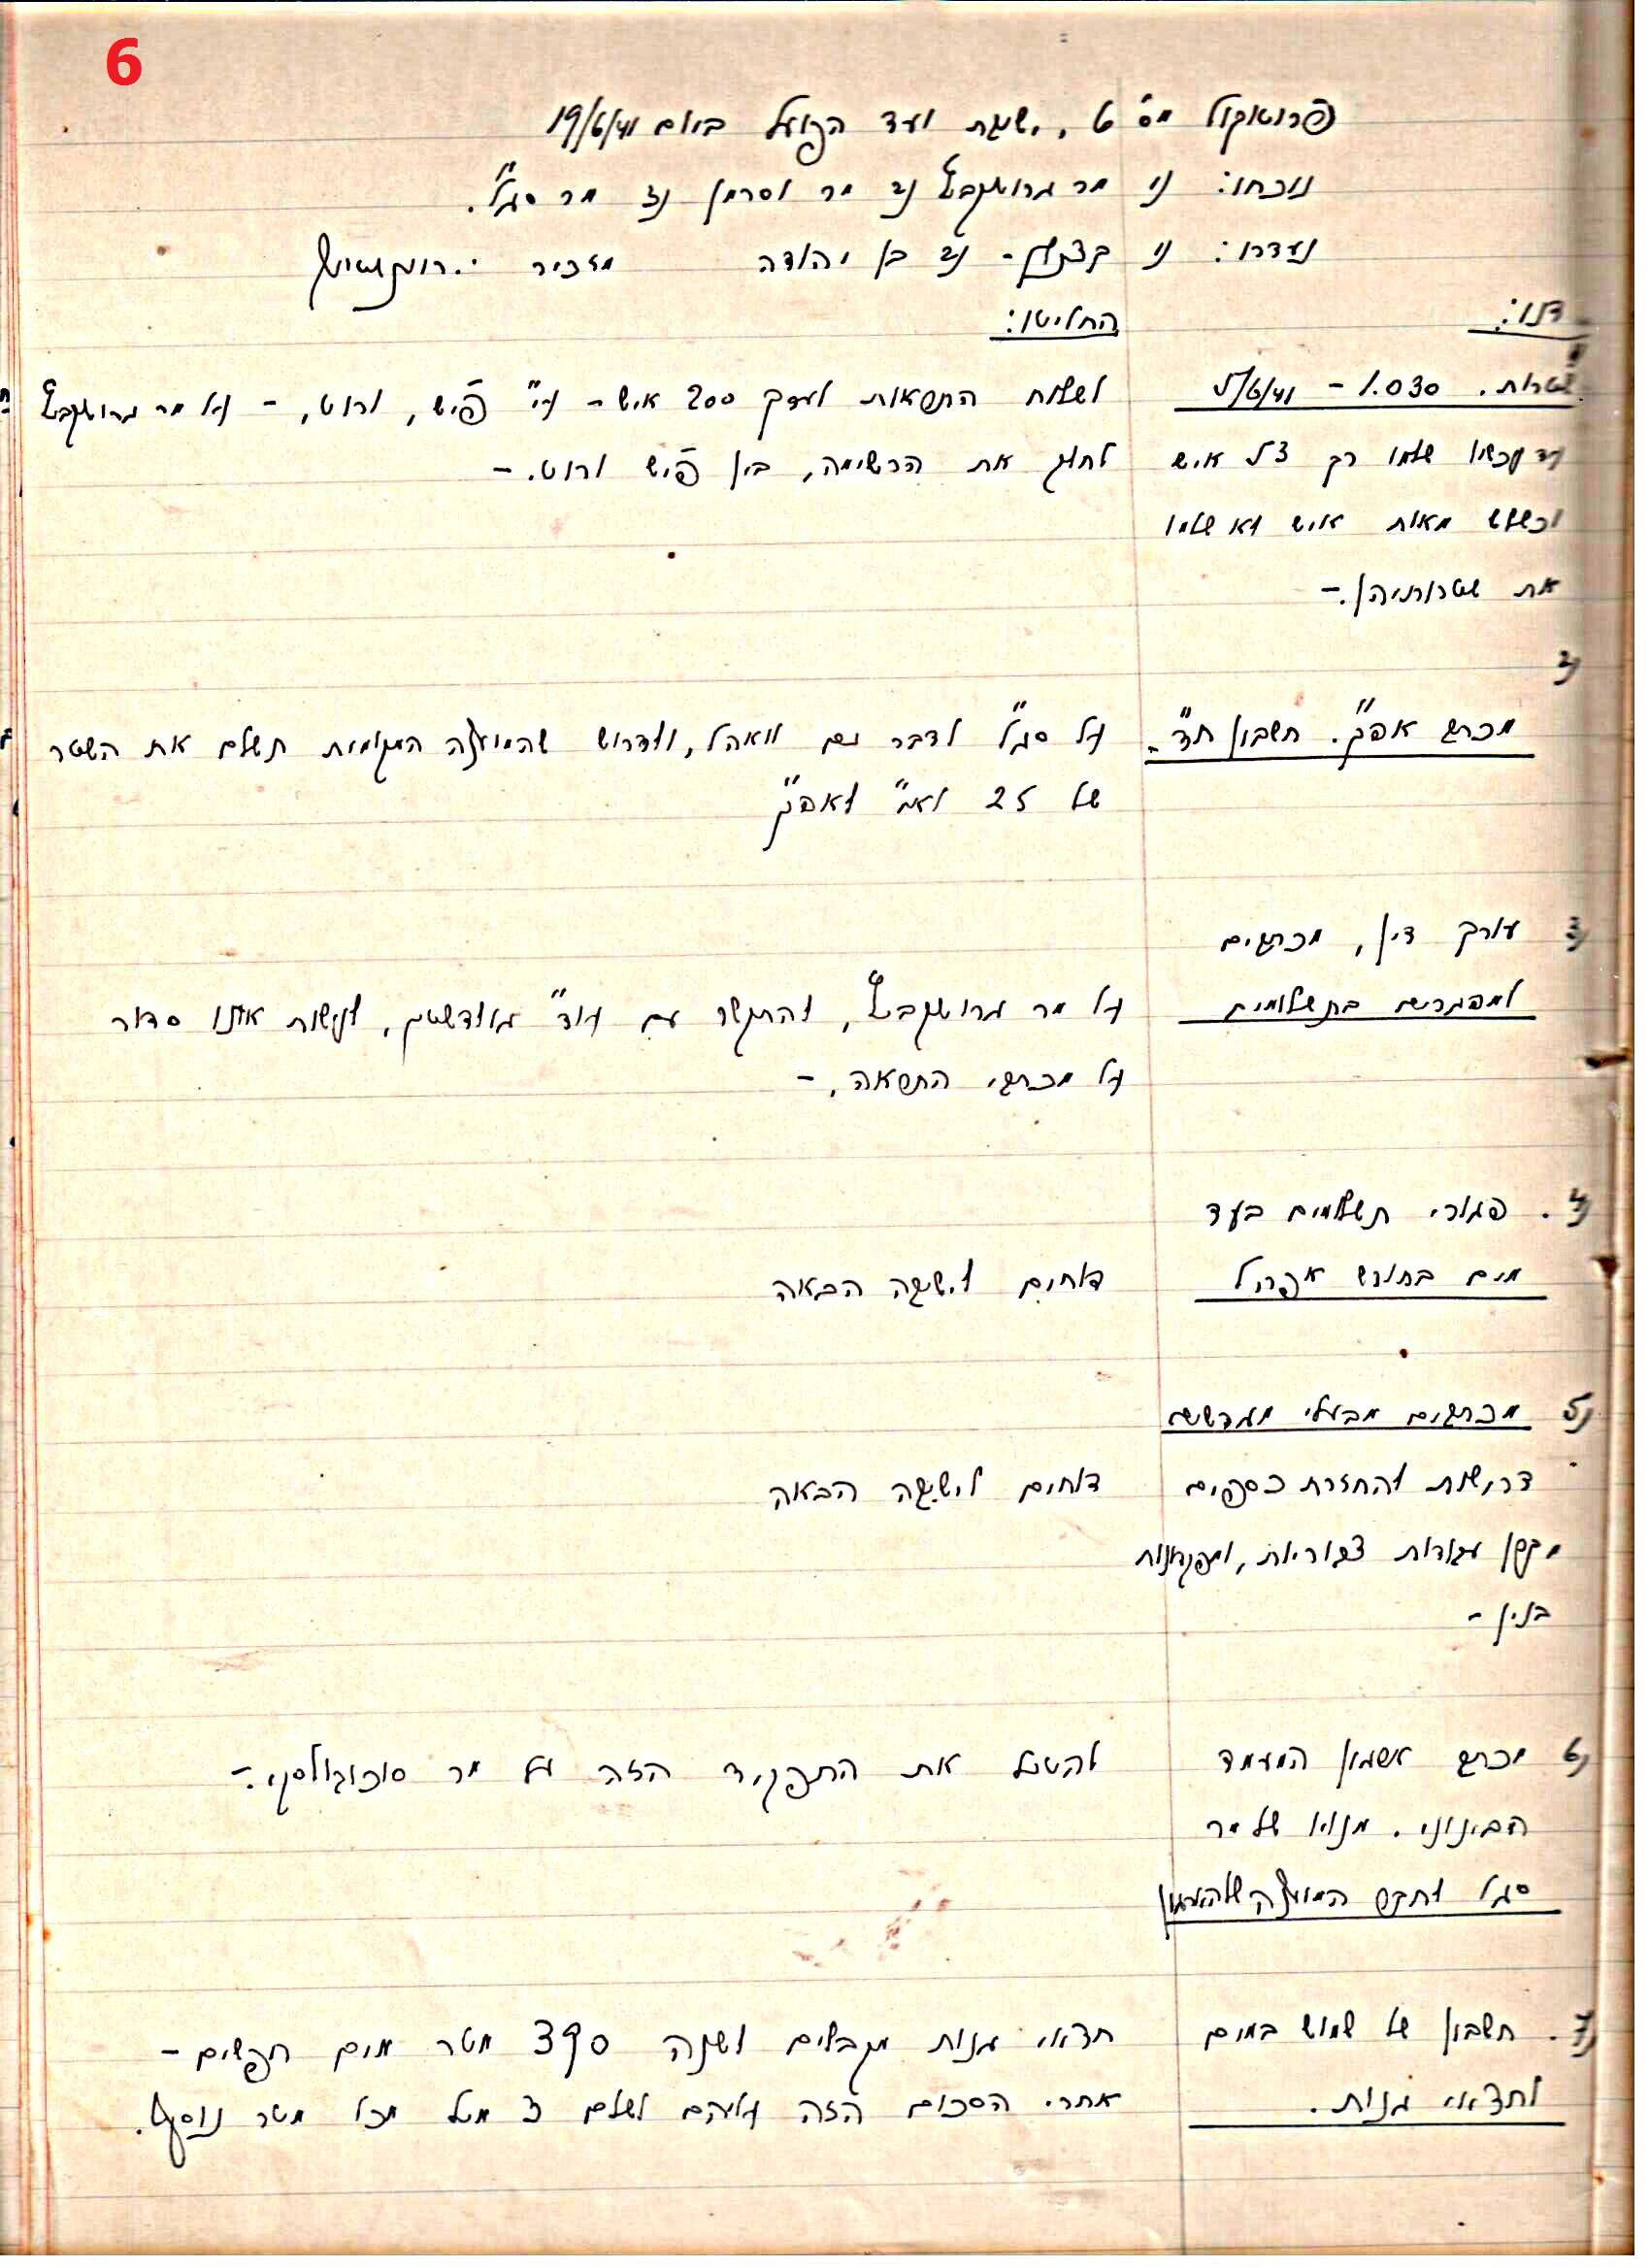 6
פרוטוקול מס' 6, ישיבת ועד הפועל ביום 19/6/41
נוכחו: ה' מר גרושקביץ ה' מר וסרמן ה' מר סגל.
נעדרו: ה' ה' בן יהודה מזכיר י. רוטנשטיין
דנו:
החליטו:
שטרות. 1.030 - 5/6/41
עד עכשיו שלמו רק 35 איש
וכשלש מאות איש לא שלמו
את שטרותיהן.-
לשלוח התראות לערך 200 איש - ע"י פיש, ורוט, - על מר גרושקביץ
לחלק את הרשימה, בין פיש ורוט. -
2)
מכתב אפ"ק. חשבון חד.
על סגל לדבר עם וואהל, ולדרוש שהמועצה המקומית תשלם את השטר
של 25 לא"י לאפ"ק
3) עורך דין, מכתבים
למפגרים בתשלומים
על מר גרושקביץ, להתקשר עם עו"ד גולדשטיין, ולעשות אתו סדור
על מכתבי התראה. -
4). פגורי תשלומים בעד
מים בחודש אפריל
דוחים לישיבה הבאה
5) מכתבים מבעלי מגרשים
דרישות להחזרת כספים
מקרן עבודות צבוריות,
בנין -
דוחים לישיבה הבאה
6) מכתב ארגון המעמד
הבינוני. מנוי של מר
סגל לחבר המועצה של הארגון
להטיל את התפקיד הזה על מר סוכובולסקי. -
7). חשבון של שמוש במים
לחצאי גנות.
חצאי גנות מקבלים לשנה 390 מטר מים חפשים -
אחרי הסכום הזה עליהם לשלם 3 מיל מכל מטר נוסף.